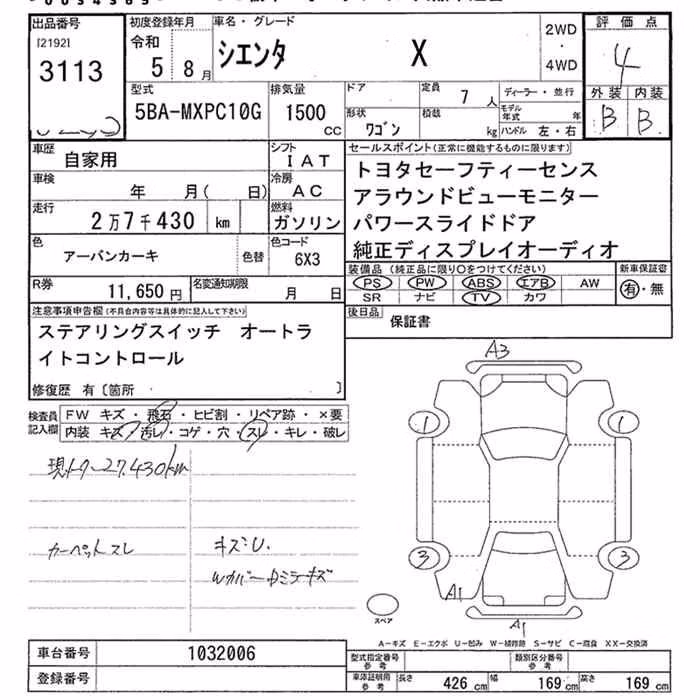 出品番号 初度登録年月 車名・グレード 2WD 評価点
[2192] 令和 シエンタ X ・ 4
3113 5 8月 4WD 外装 内装
型式 排気量 ドア 定員 7人 ディーラー・並行 B B
5BA-MXPC10G 1500 CC 形状 ワゴン 積載 kg モデル年式 年 ハンドル 左・右
車歴 自家用 シフト IAT セールスポイント(正常に機能するものに限ります)
車検 年 月( 日) 冷房 AC トヨタセーフティーセンス
アラウンドビューモニター
走行 2万7千430 km 燃料 ガソリン パワースライドドア
色 アーバンカーキ 色替 色コード 6X3 純正ディスプレイオーディオ
装備品(純正品に限り○をつけてください) 新車保証書
R券 11,650円 名変通知期限 月 日 PS PW ABS エアB AW 有・無
SR ナビ TV カワ
注意事項申告欄(不具合内容等は具体的に記入して下さい) 後日品 保証書
ステアリングスイッチ オートラ
イトコントロール
修復歴 有〔箇所 〕
A3
検査員記入欄 FW キズ・飛石・ヒビ割・リペア跡・×要
内装 キズ・汚レ・コゲ・穴・スレ・キレ・破レ
1 1
現メーター27.430km
カーペットスレ キズ・U.
3 3
A1
スペア
A1
A-キズ E-エクボ U-凹み W-補修跡 S-サビ C-腐食 XX-交換済
車台番号 1032006 型式指定番号 参考 類別区分番号 参考
登録番号 車庫証明用 参考 長さ 426 cm 幅 169 cm 高さ 169 cm